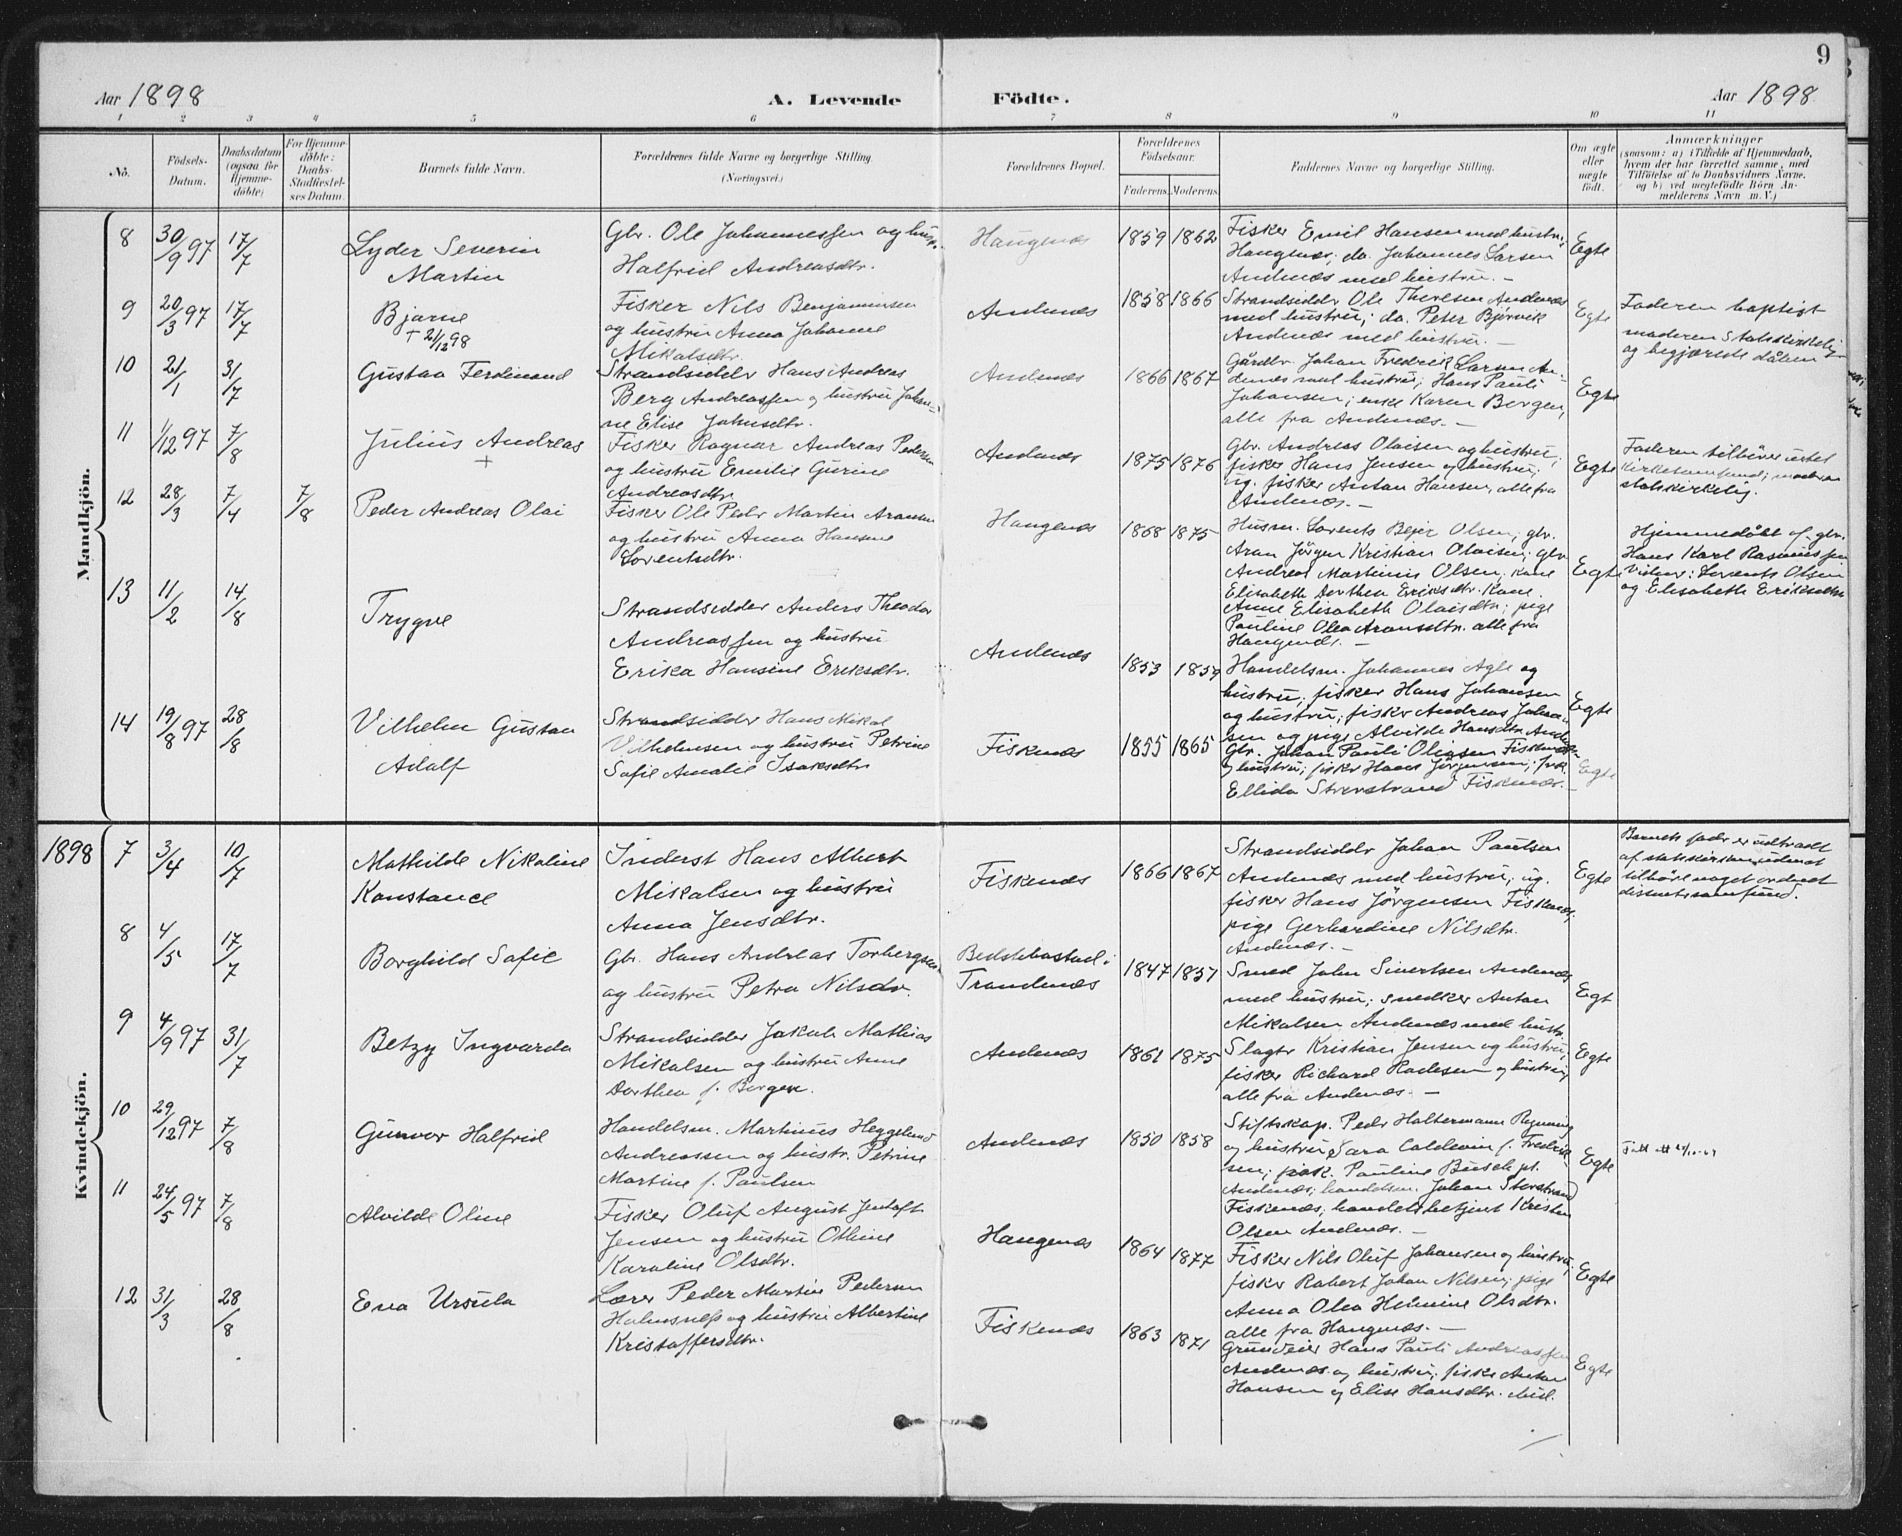 9
Aar 1898
A. Levende Födte.
Aar 1898
1 2 3 4 5 6 7 8 9 10 11
No.
Födsels-
Datum.
Daabsdatum
(ogsaa for
Hjemme-
döbte)
For Hjemme-
döbte:
Daabs-
Stadfæstel-
ses Datum.
Barnets fulde Navn.
Forældrenes fulde Navne og borgerlige Stilling
(Næringsvei.)
Forældrenes Bopæl.
Forældrenes
Födselsaar.
Faderens. Moderens.
Faddernes Navne og borgerlige Stilling.
Om ægte
eller
uægte
födt.
Anmærkninger
(saasom: a) i Tilfælde af Hjemmedaab,
hvem der har forrettet samme, med
Tilföielse af to Daabsvidners Navne.
og b) ved uægtefödte Börn An-
melderens Navn m. V.)
Mandkjön.
8 30/9 97 17/7
Lyder Severin
Martin
Gbr. Ole Johannessen og hustr.
Halfrid Andreasdtr.
Haugenæs
1859 1862
Fisker Emil Hansen med hustr.
Haugenæs; do. Johannes Larsen
Andenæs med hustru. -
Egte
9 20/3 97 17/7
Bjarne
+ 21/12 98
Fisker Nils Benjaminsen
og hustru Anna Johanne
Mikalsdtr.
Andenæs
1858 1866
Strandsidder Ole Thersen Andenæs
med hustru; do. Peter Bjørvik
Andenæs med hustru. -
Egte
Faderen baptist
moderen statskirkelig
og begjærede dåben
10 21/1 31/7
Gustav Ferdinand
Strandsidder Hans Andreas
Berg Andreassen og hustru Johan-
ne Elise Johnsdtr.
Andenæs
1866 1867
Gårdbr. Johan Fredrik Larsen An-
denæs med hustru; Hans Pauli
Johansen; enke Karen Borgen,
alle fra Andenæs. -
Egte
11 1/12 97 7/8
Julius Andreas
+
Fisker Ragnar Andreas Pedersen
og hustru Emilie Gurine
Andreasdtr.
Andenæs
1875 1876
Gbr. Andreas Olaisen og hustru;
fisker Hans Jensen og hustru;
ug. fisker Anton Hansen, alle fra
Andenæs. -
Egte
Faderen tilhører intet
kirkesamfund; moderen
statskirkelig.
12 28/3 7/4 7/8
Peder Andreas Olai
Fisker Ole Peder Martin Aronsen
og hustru Anna Hansine
Lorentsdtr.
Haugenæs
1868 1875
Husm. Lorents Bejer Olsen, gbr.
Aron Jørgen Kristian Olaisen; gbr.
Andreas Martinus Olsen, kone
Elisabeth Dorthea Eriksdtr. Kone.
Anne Elisabeth Olaisdtr; pige
Pauline Olea Aronsdtr. alle fra
Haugenæs. -
Egte
Hjemmedøbt af gbr.
Hans Karl Rasmussen
Vidner: Lorents Olsen
og Elisabeth Eriksdtr.
13 11/2 14/8
Trygve
Strandsidder Anders Theodor
Andreassen og hustru
Erika Hansine Eriksdtr.
Andenæs
1853 1859
Handelsm. Johannes Agle og
hustru; fisker Hans Johansen
og hustru; fisker Andreas Johan-
sen og pige Alvilde Hansdtr. Andenæs
Egte
14 19/8 97 28/8
Vilhelm Gustav
Adolf
Strandsidder Hans Mikal
Vilhelmsen og hustru Petrine
Sofie Amalie Isaksdtr.
Fiskenæs
1855 1865
Gbr. Johan Pauli Olaisen Fiskenæs
og hustru; fisker Hans Jørgensen; frk.
Ellida Storstrand Fiskenæs. -
Egte
Kvindekjön.
1898 7 3/4 10/7
Mathilde Nikoline
Konstance
Inderst Hans Albert
Mikalsen og hustru
Anna Jensdtr.
Fiskenæs
1866 1867
Strandsidder Johan Paulsen
Andenæs med hustru; ug.
fisker Hans Jørgensen Fiskenæs,
pige Gerhardine Nilsdtr.
Andenæs. -
Egte
Barnets fader er udtraadt
af statskirken uden at
tilhøre noget ordnet
dissentersamfund.
8 4/5 17/7
Borghild Sofie
Gbr. Hans Andreas Torbergsen
og hustru Petra Nilsdtr.
Trondenæs
1847 1857
Smed John Sivertsen Andenæs
med hustru; snedker Anton
Mikalsen Andenæs med hustr.
Egt
9 4/9 97 31/7
Betzy Ingvarda
Strandsidder Jakob Mathias
Mikalsen og hustru Anne
Dorthea f. Borgen.
Andenæs
1861 1875
Slagter Kristian Jensen og hustru;
fisker Richard Radesen og hustru;
alle fra Andenæs. -
Egte
10 29/12 97 7/8
Gunvor Halfrid
Handelsm. Martinus Heggelund
Andreassen og hustr. Petrine
Martine f. Paulsen
Andenæs
1850 1858
Stiftskap. Peder Holtermann Rynning
og hustru Sara Caldevin f. Fredrik-
sen; frøk. Pauline Busch pt.
Andenæs; handelsm. Johan Storstrand
Fiskenæs; handelsbetjent Kristen
Olsen Andenæs. -
Egte
11 24/5 97 7/8
Alvilde Oline
Fisker Oluf August Jentoft
Jensen og hustru Othine
Karoline Olsdtr.
Haugenæs
1864 1877
Fisker Nils Oluf Johansen og hustru;
fisker Robert Johan Nilsen; pige
Anna Olea Helmine Olsdtr.
alle fra Haugenæs. -
Egte
12 31/3 28/8
Eva Ursula
Lærer Peder Martin Pedersen
Holmsnæss og hustru Albertine
Kristoffersdtr.
Fiskenæs
1863 1871
Grundeier Hans Pauli Andreassen
Andenæs og hustru; fisker Anton
Hansen og Elise Hansdtr. ibid.
Egte